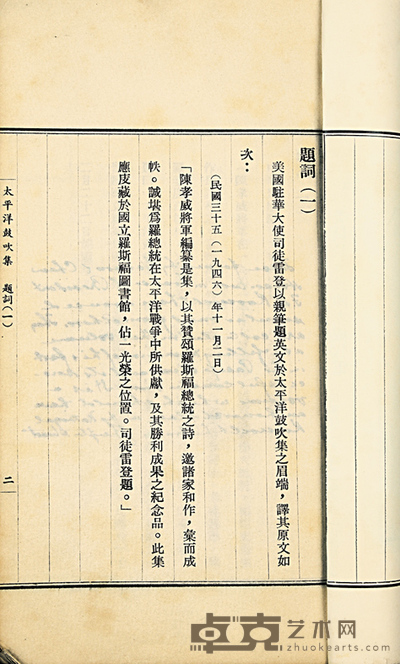 題詞(一)
美國駐華大使司徒雷登以親筆題英文於太平洋鼓吹集之眉端,譯其原文如
次:
(民國三十五(一九四六)年十一月二日)
「陳孝威將軍編纂是集,以其贊頌羅斯福總統之詩,邀諸家和作,彙而成
帙。誠堪爲羅總統在太平洋戰爭中所供獻,及其勝利成果之紀念品。此集
應庋藏於國立羅斯福圖書館,佔一光榮之位置。司徒雷登題。」
太平洋鼓吹集 題詞(一) 二
卓克艺术网
zhuokearts.com